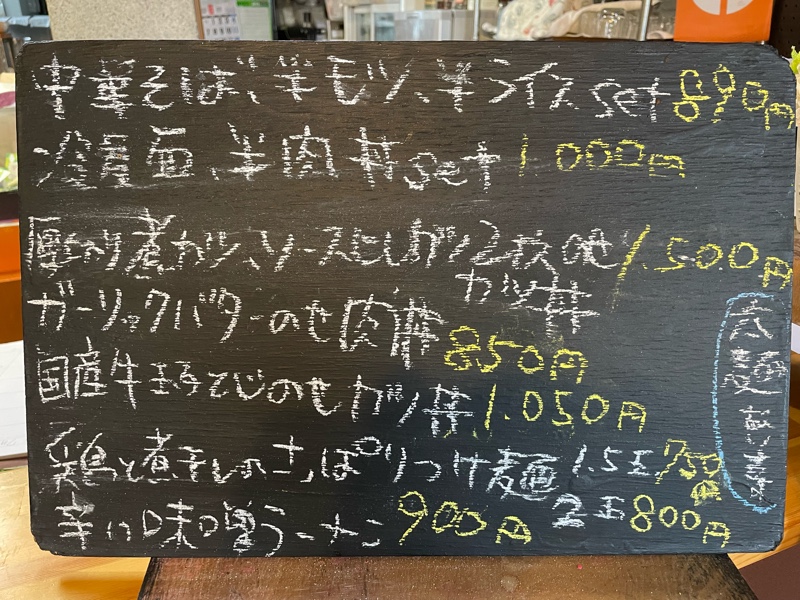 中華そば、半モツ、半ライスset 890円
冷麺、半肉丼set 1000円
厚切り煮カツ、ソースヒレカツ2枚のせ 1.500円
カツ丼
ガーリックバターのせ肉丼 850円
国産牛玉子とじのせカツ丼 1.050円
鶏と煮干しのさっぱりつけ麺 1.5玉 750円
辛い味噌ラーメン 900円 2玉 800円